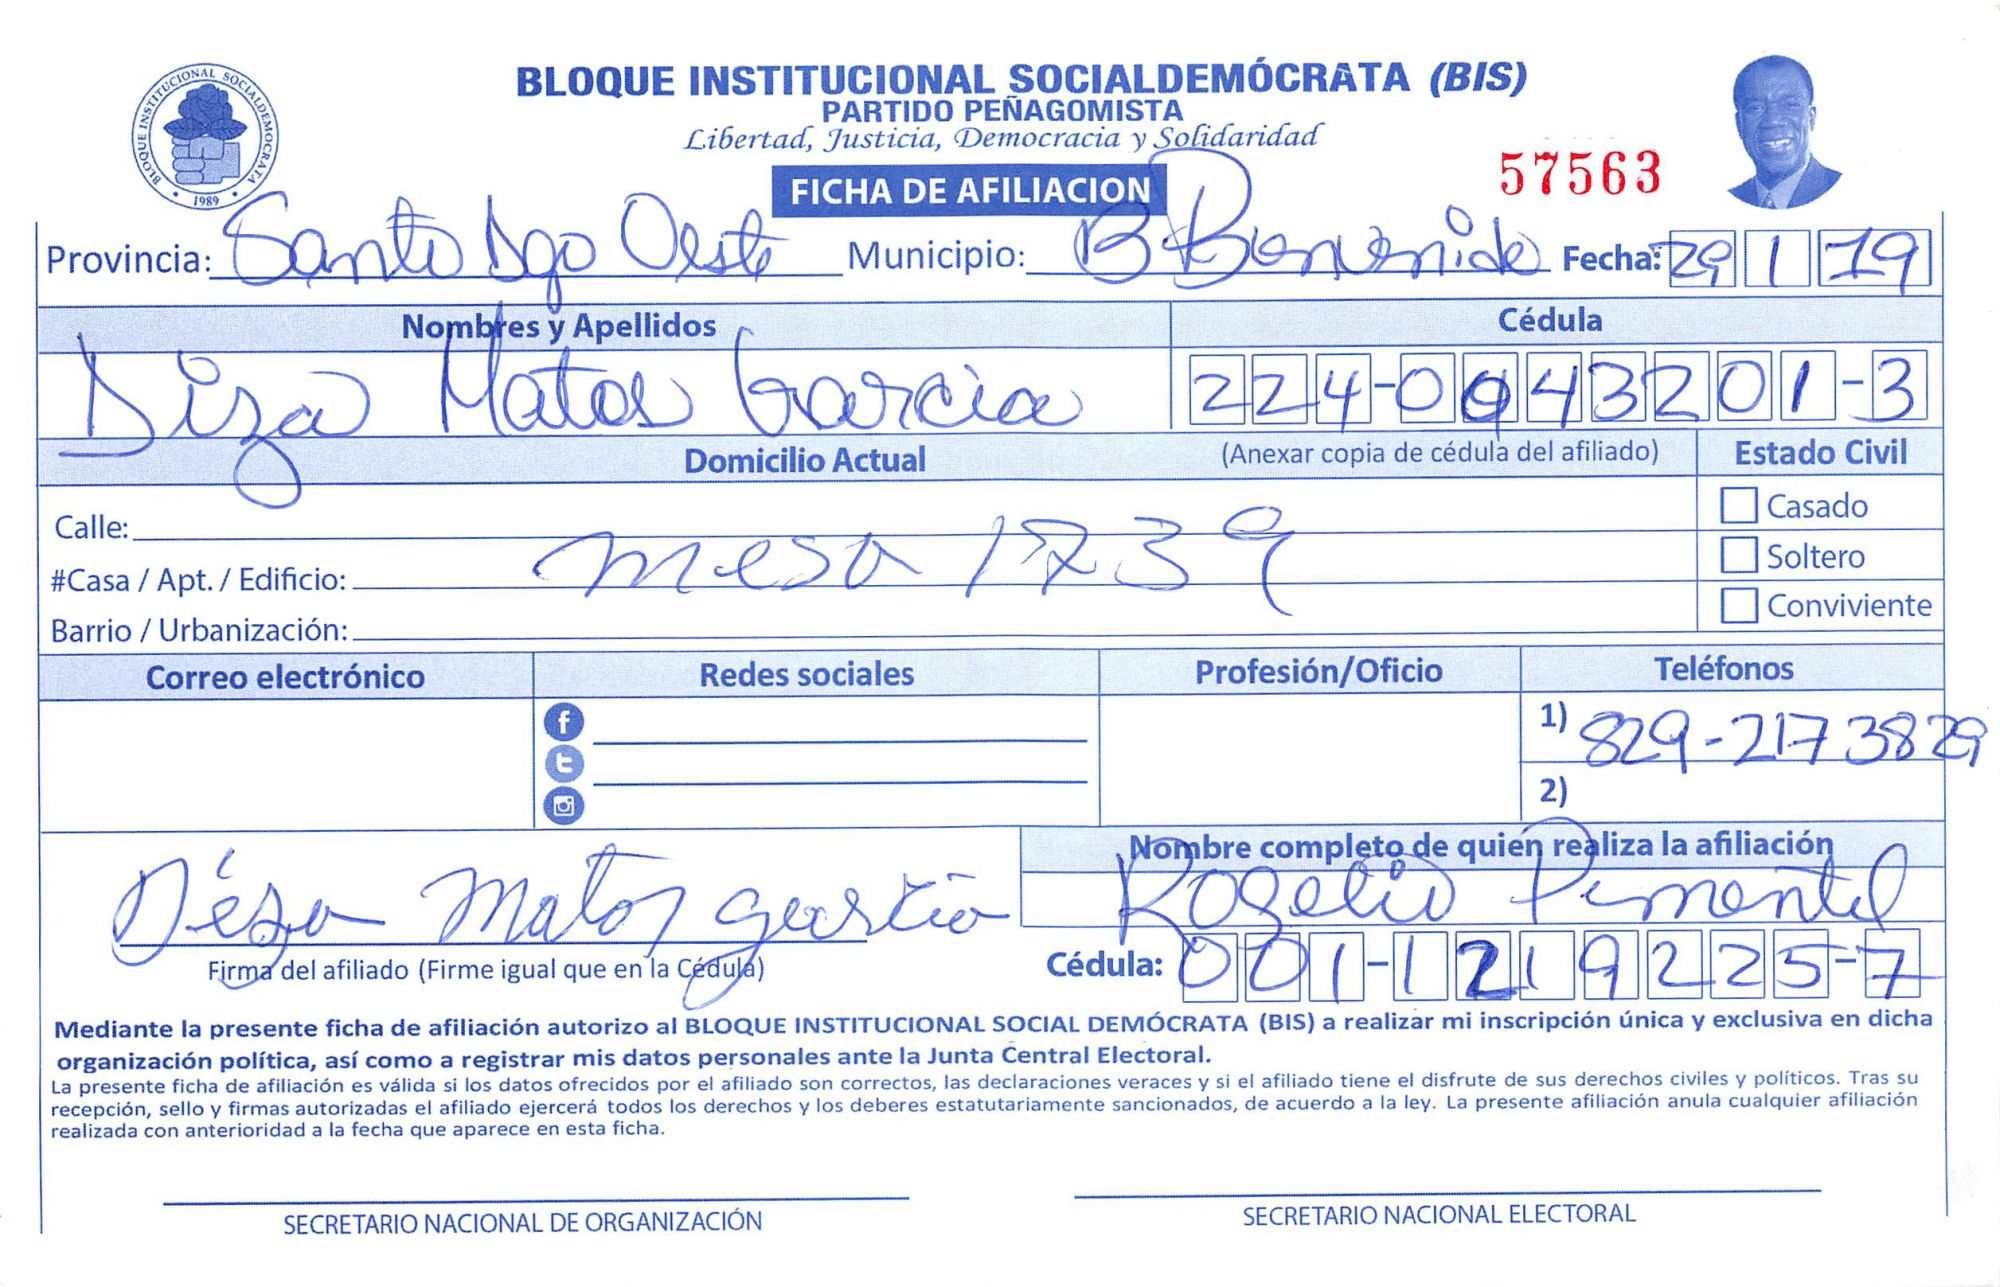 BLOQUE INSTITUCIONAL SOCIALDEMOCRATA
1989
BLOQUE INSTITUCIONAL SOCIALDEMÓCRATA (BIS)
PARTIDO PEÑAGOMISTA
Libertad, Justicia, Democracia y Solidaridad
FICHA DE AFILIACION
57563
Provincia: Santo Dgo Oeste Municipio: B Bienvenido Fecha: 29 1 19
Nombres y Apellidos Cédula
Diza Matos Garcia 224-0043201-3
Domicilio Actual (Anexar copia de cédula del afiliado) Estado Civil
Calle: Casado
mesa 1739
#Casa / Apt. / Edificio: Soltero
Barrio / Urbanización: Conviviente
Correo electrónico Redes sociales Profesión/Oficio Teléfonos
1) 829-217 3829
2)
Nombre completo de quién realiza la afiliación
Déza Matos garcia Rogelio Pimentel
Firma del afiliado (Firme igual que en la Cédula) Cédula: 001-1219225-7
Mediante la presente ficha de afiliación autorizo al BLOQUE INSTITUCIONAL SOCIAL DEMÓCRATA (BIS) a realizar mi inscripción única y exclusiva en dicha
organización política, así como a registrar mis datos personales ante la Junta Central Electoral.
La presente ficha de afiliación es válida si los datos ofrecidos por el afiliado son correctos, las declaraciones veraces y si el afiliado tiene el disfrute de sus derechos civiles y políticos. Tras su
recepción, sello y firmas autorizadas el afiliado ejercerá todos los derechos y los deberes estatutariamente sancionados, de acuerdo a la ley. La presente afiliación anula cualquier afiliación
realizada con anterioridad a la fecha que aparece en esta ficha.
SECRETARIO NACIONAL DE ORGANIZACIÓN SECRETARIO NACIONAL ELECTORAL